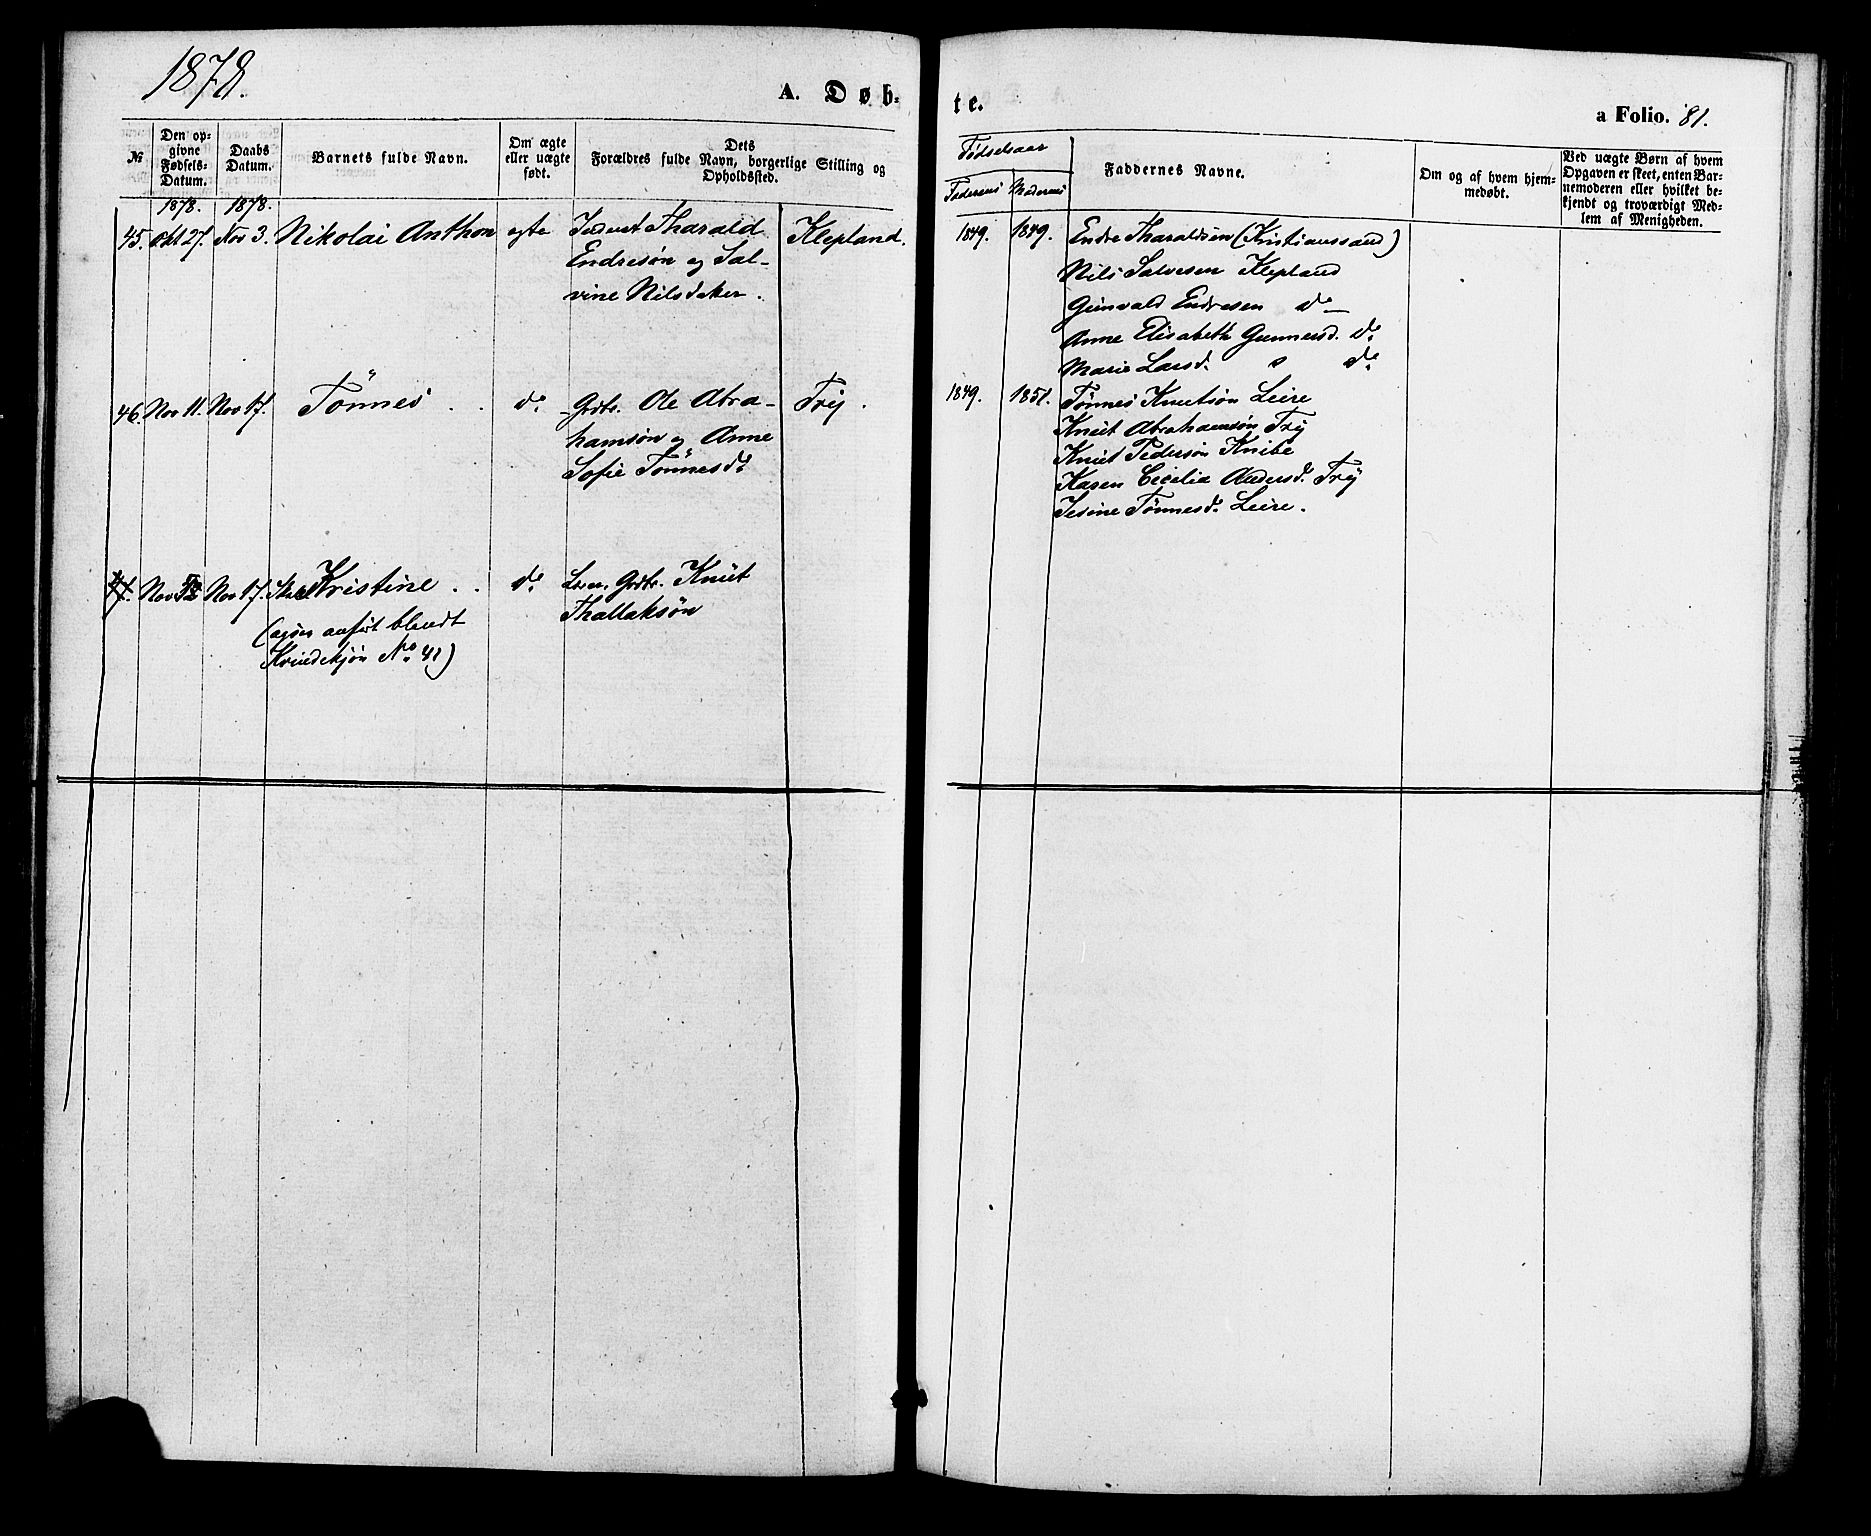 1878.
A. Døb-
te.
a Folio. 81.
№
Den op-
givne
Fødsels-
Datum.
Daabs
Datum.
Barnets fulde Navn.
Om ægte
eller uægte
født.
Dets
Forældres fulde Navn, borgerlige Stilling og
Opholdssted.
Fødselsaar
Faderens Moderens
Faddernes Navne.
Om og af hvem hjem-
medøbt.
Ved uægte Børn af hvem
Opgaven er skeet, enten Bar-
nemoderen eller hvilket be-
kjendt og troværdigt Med-
lem af Menigheden.
1878. 1878.
45. Okt 27. Nov 3. Nikolai Anthon egte Tharald Klepland.
Endresøn og Sal-
vine Nilsdatter.
1849. 1849. Endre Tharaldsen (Kristianssand)
Nils Salvesen Klepland
Gunvald Endresen do
Anne Elisabeth Gunnersd. do
Marie Larsd. do
46. Nov 11. Nov 17. Tönnes . . do Grdbr. Ole Abra- Trÿ.
hamsøn og Anne
Sofie Tönnesdt
1849. 1851. Tönnes Knutsön Leire
Knut Abrahamsön Trÿ
Knut Pedersön Knibe
Karen Cecilia Andersd. Trÿ
Tönnesd. Leire.
47. Nov 12 Nov 17. Kristine . . do Grdbr. Knut
Thallaksön
anført blandt
Kvindekjøn No 41)